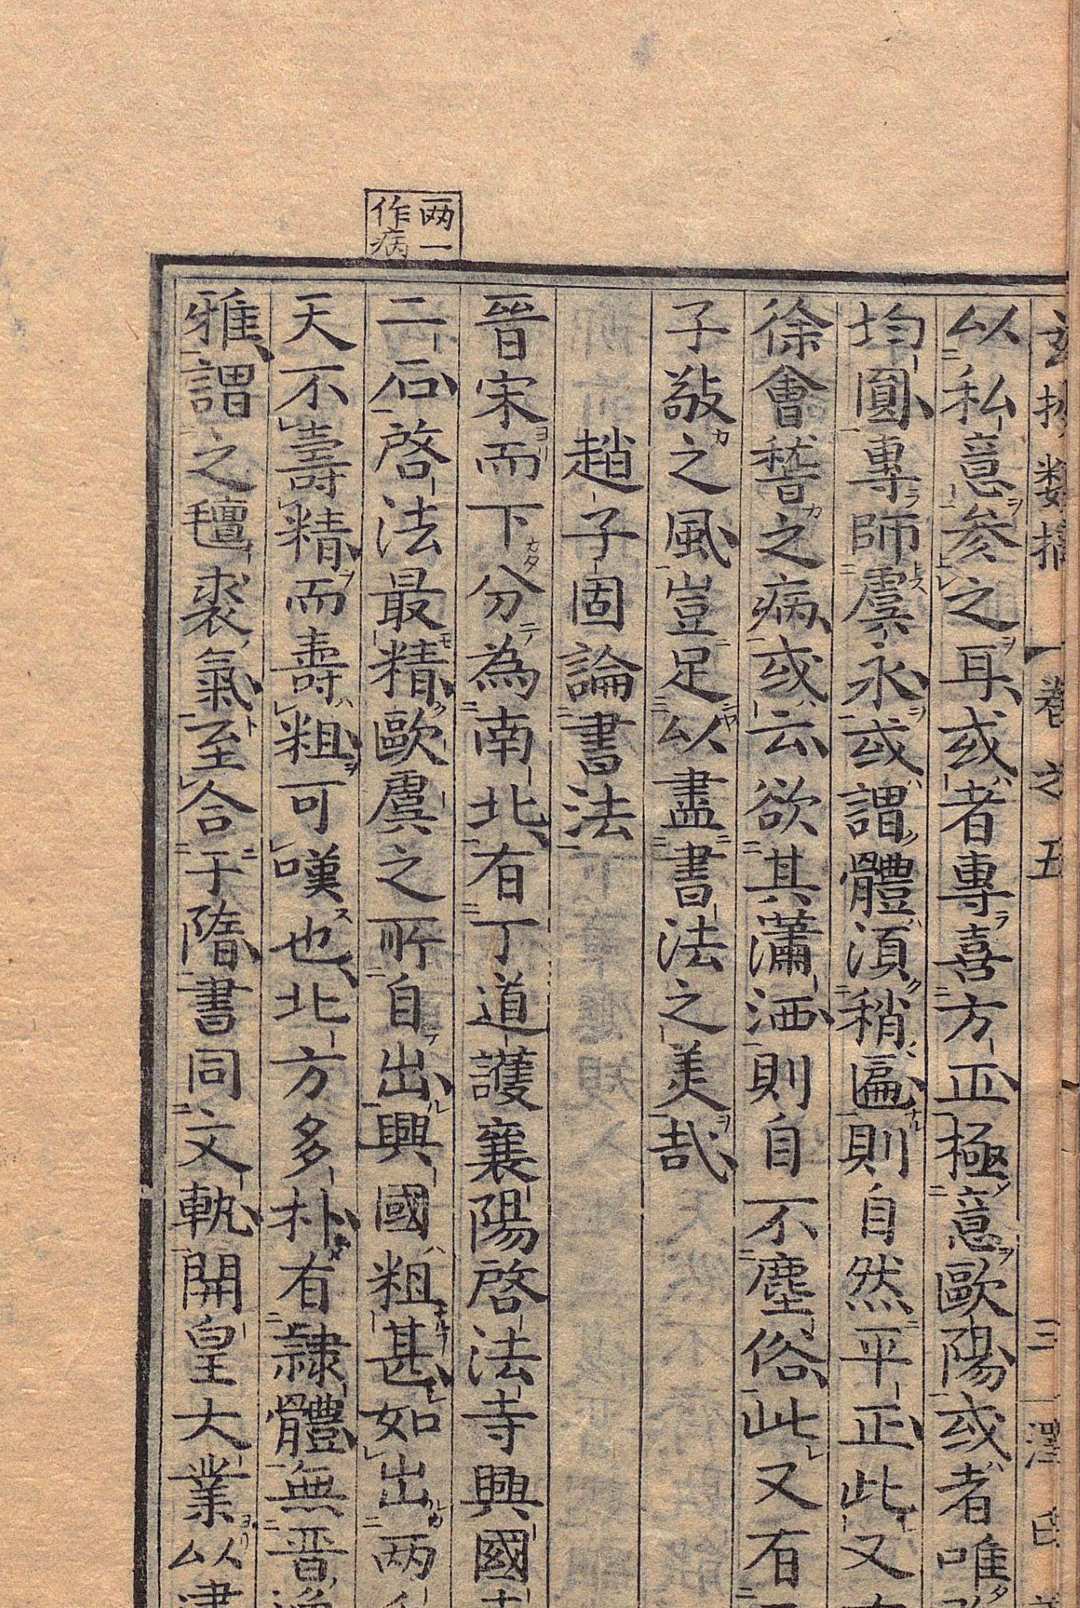 卷之五 三
以私意參之耳或者專喜方正極意歐陽或者唯
均圓專師虞永或謂體須稍匾則自然平正此又
徐會稽之病或云欲其瀟洒則自不塵俗此又有
子敬之風豈足以盡書法之美哉
趙子固論書法
晉宋而下分為南北有丁道護襄陽啓法寺興國
兩一
作病
二石啓法最精歐虞之所自出興國粗甚如出兩
天不壽精而壽粗可嘆也北方多朴有隷體無晉
雅謂之氊裘氣至合于隋書同文軌開皇大業以